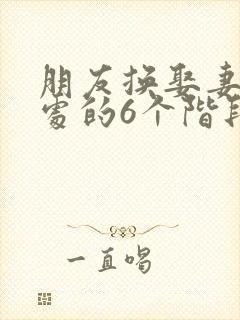 朋友换娶妻
处的6个阶段
一直唱